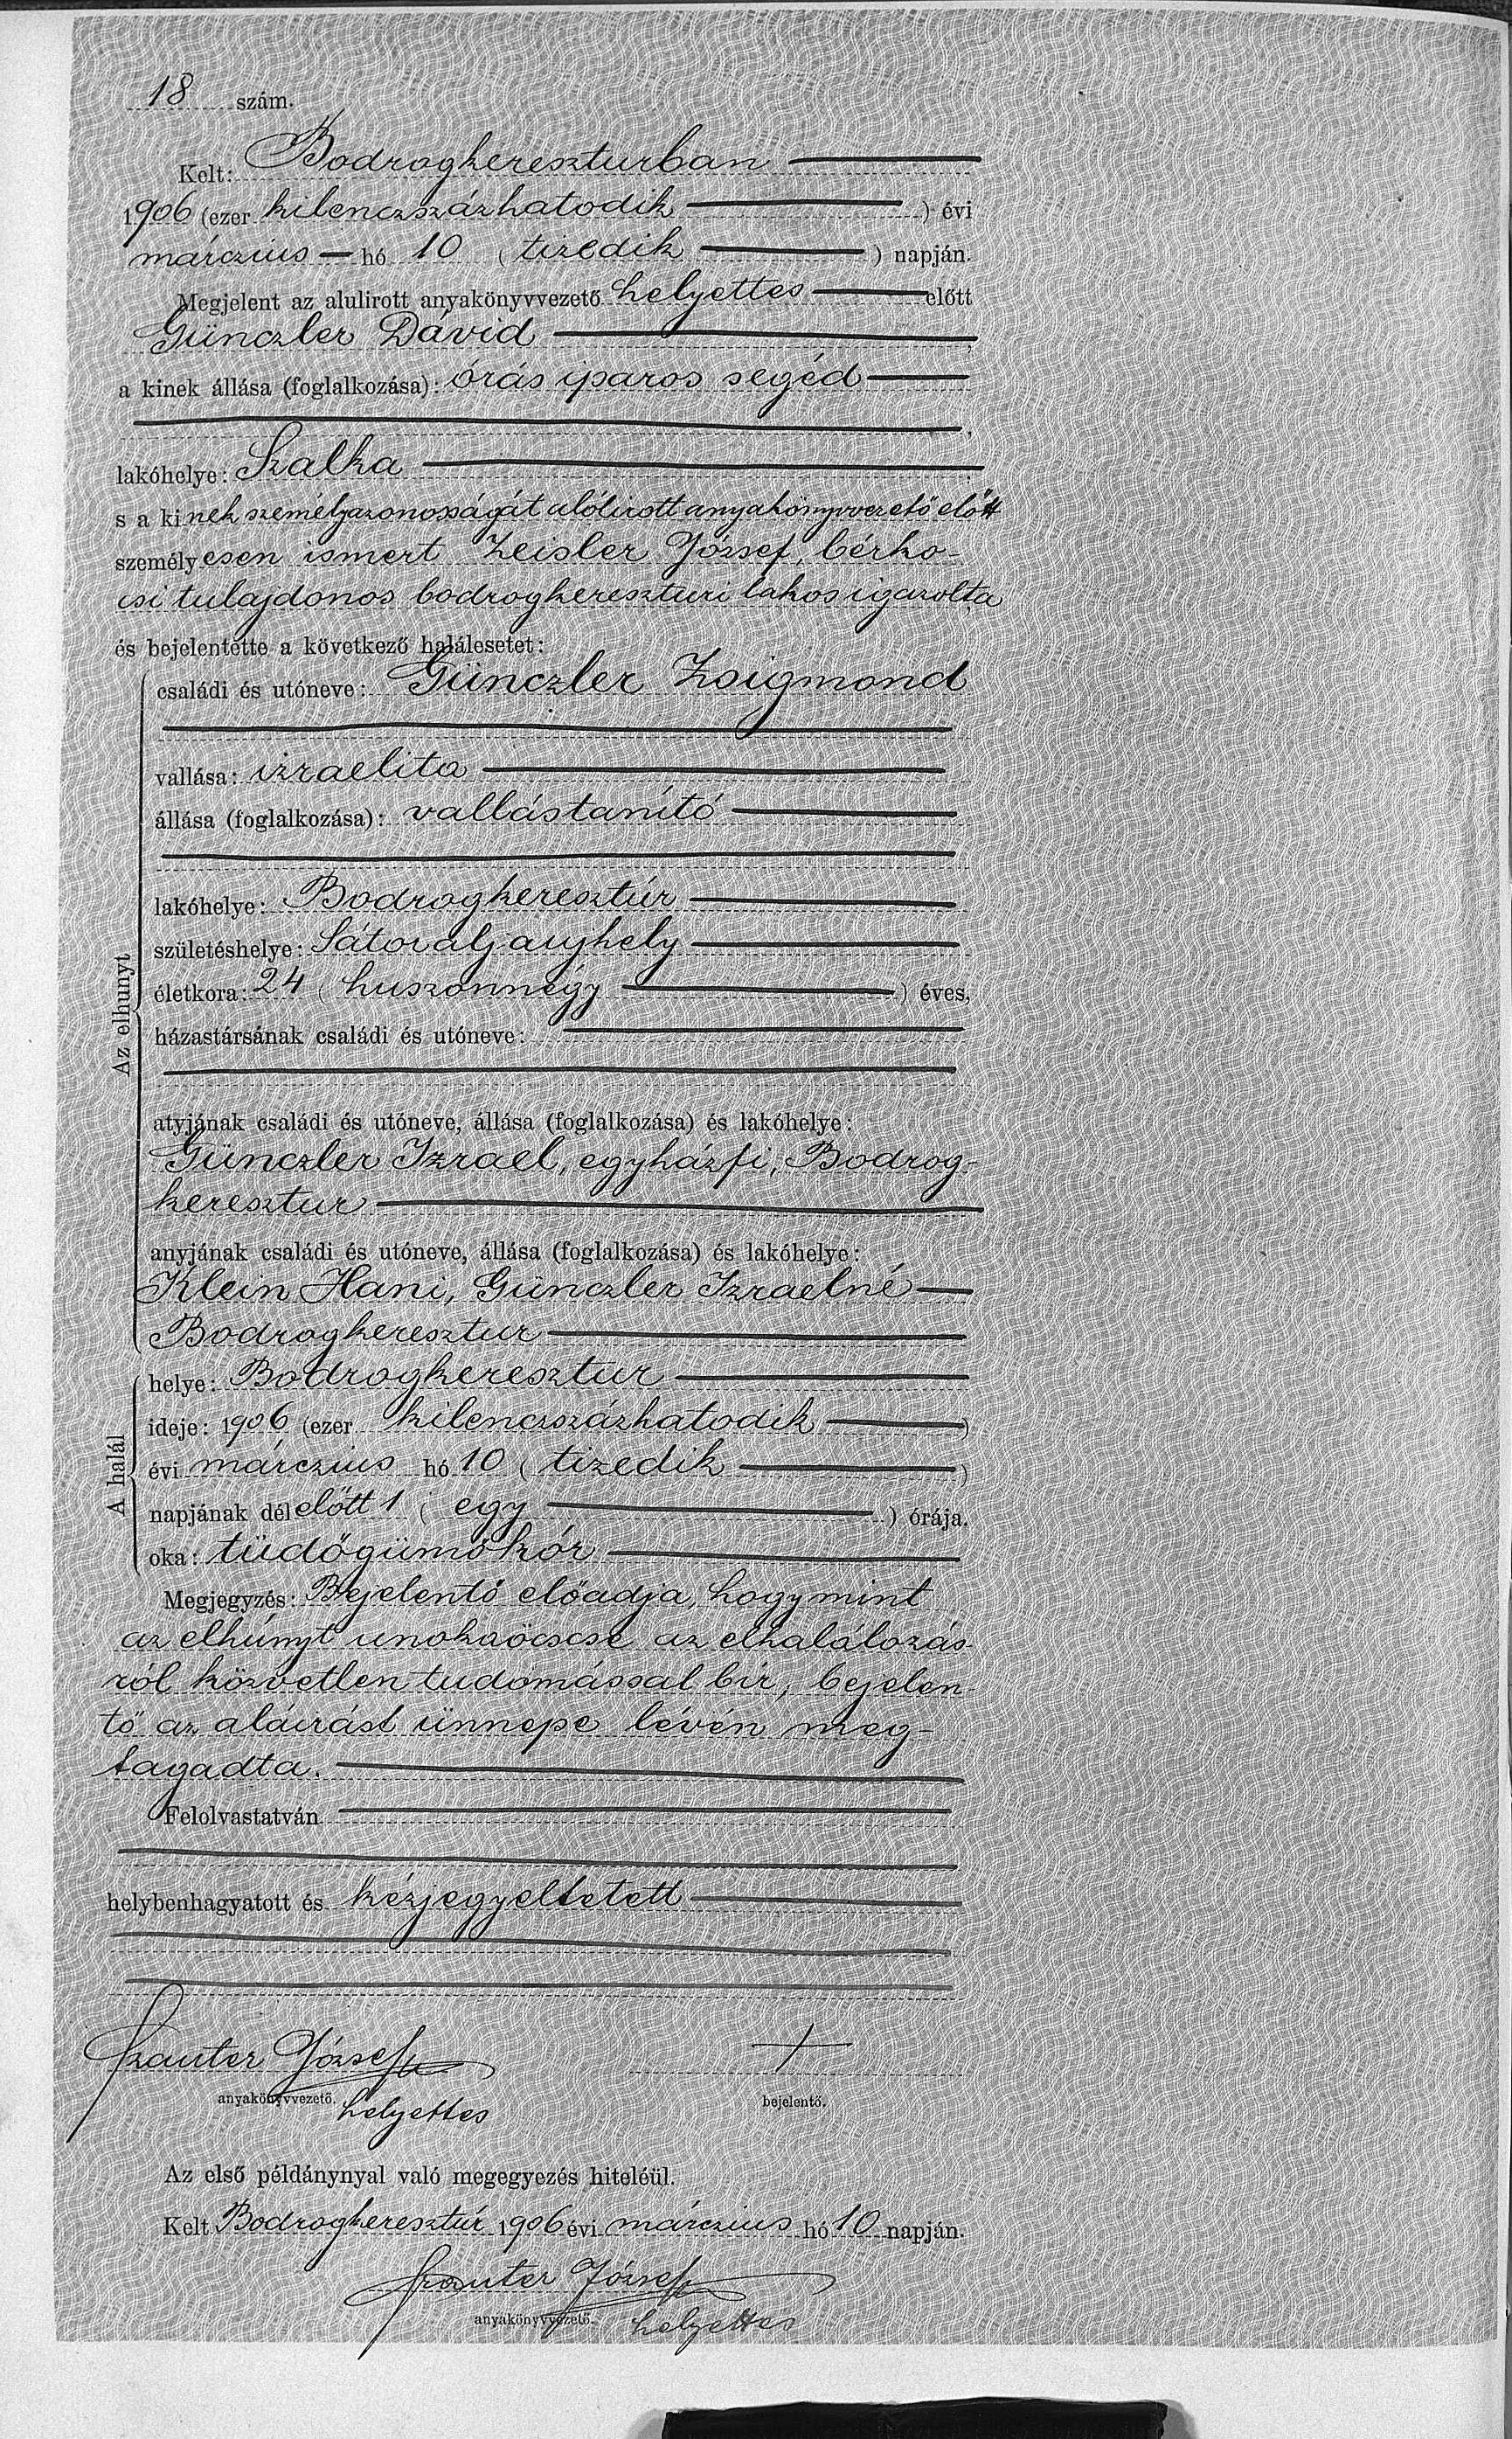 18 szám.
Kelt: Bodrogkereszturban
1906 (ezer kilenczszázhatodik ) évi
márczius hó 10 ( tizedik ) napján.
Megjelent az alulirott anyakönyvvezető helyettes előtt
Günczler Dávid
a kinek állása (foglalkozása): órás iparos segéd
lakóhelye: Szalka
s a kinek személyazonosságát alólirott anyakönyvvezető előtt
személyesen ismert Zeisler József, bérko-
csi tulajdonos bodrogkereszturi lakos igazolta
és bejelentette a következő halálesetet:
Az elhunyt
családi és utóneve: Günczler Zsigmond
vallása: izraelita
állása (foglalkozása): vallástanító
lakóhelye: Bodrogkeresztúr
születéshelye: Sátoraljaujhely
életkora: 24 ( huszonnégy ) éves,
házastársának családi és utóneve:
atyjának családi és utóneve, állása (foglalkozása) és lakóhelye:
Günczler Izrael, egyházfi, Bodrog-
keresztur
anyjának családi és utóneve, állása (foglalkozása) és lakóhelye:
Klein Hani, Günczler Izraelné
Bodrogkeresztur
A halál
helye: Bodrogkeresztur
ideje: 1906 (ezer kilenczszázhatodik )
évi márczius hó 10 ( tizedik )
napjának délelőtt 1 ( egy ) órája.
oka: tüdőgümőkór
Megjegyzés: Bejelentő előadja, hogy mint
az elhúnyt unokaöcscse az elhalálozás-
ról közvetlen tudomással bír, bejelen-
tő az aláirást ünnepe lévén meg-
tagadta.
Felolvastatván
helybenhagyatott és kézjegyeltetett
József
anyakönyvvezető. helyettes
+
bejelentő.
Az első példánynyal való megegyezés hiteléül.
Kelt Bodrogkeresztúr 1906 évi márczius hó 10 napján.
József
anyakönyvvezető. helyettes